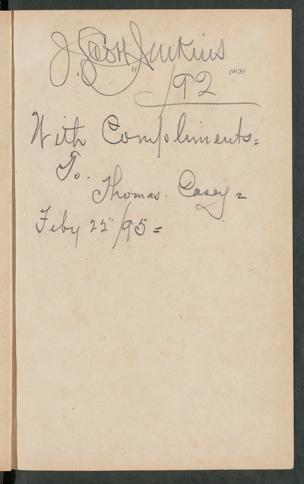 J. Scott Jenkins
/92
With Compliments=
To.
Thomas. Casey=
Feby 22"/95=